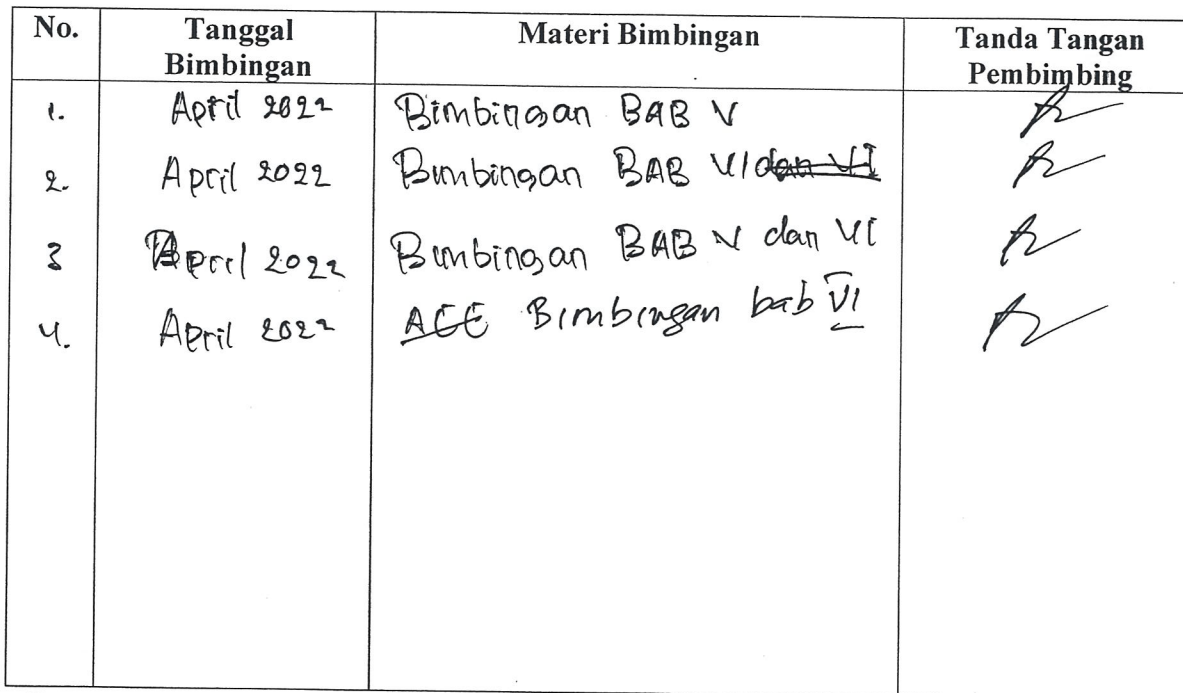 No. Tanggal Bimbingan Materi Bimbingan Tanda Tangan Pembimbing
1. April 2022 Bimbingan BAB V
2. April 2022 Bimbingan BAB VI dan VI
3 April 2022 Bimbingan BAB V dan VI
4. April 2022 ACC Bimbingan bab VI